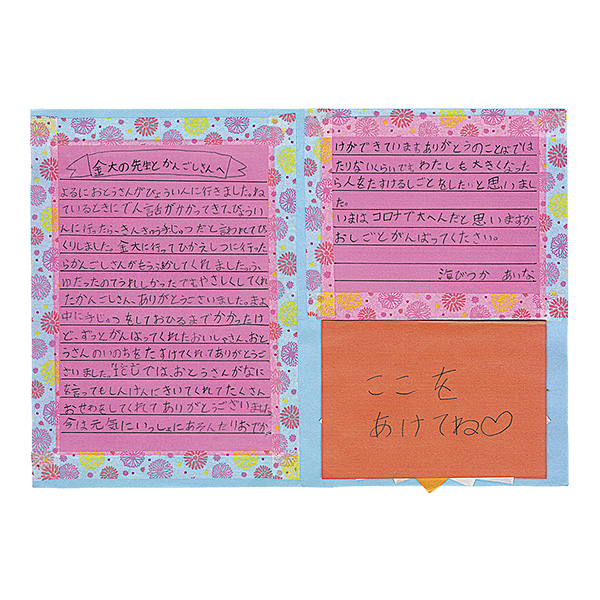 金大の先生とかんごしさんへ
よるにおとうさんがびょういんに行きました。ね
ているときにでん話がかかってきて、びょうい
んに行ったら、きんきゅう手じゅつだと言われてび
くりしました。金大に行ってひかえしつに行った
らかんごしさんがもうふかしてくれました。ふ
ゆだったのでうれしかったですやさしくしてくれ
たかんごしさん、ありがとうございました。きよ
中に手じゅつをしておひるまでかかったけ
ど、ずっとがんばってくれたおいしゃさん、おと
うさんのいのちをたすけてくれてありがとうご
ざいました。では、おとうさんがなに
を言ってもしんけんにきいてくれてたくさん
おせわをしてくれてありがとうございました
今は元気にいっしょにあそんだりおでか
けができていますありがとうのことばでは
たりないくらいです わたしも大きくなった
ら人をたすけるしごとをしたいと思いまし
た。
いまは、コロナで大へんだと思いますが
おしごとがんばってください。
海びつか あいな
ここを
あけてね♡